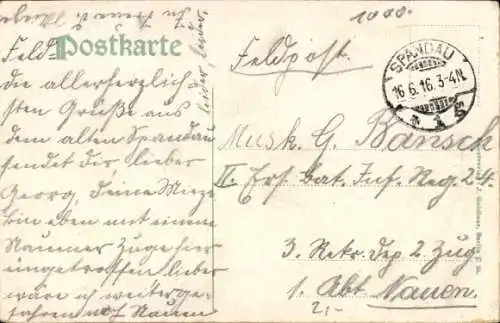 Postkarte
Feldpost.
1000.
SPANDAU
16.6.16. 3-4N.
Feld-
die allerherzlich-
sten Grüße aus
dem alten Spandau
sendet dir, lieber
Georg, deine Mieze
bin eben mit einem
Nauener Zuge hier
eingetroffen lieber
wäre ich weiterge-
fahren nach Nauen
leider, leider.
Musk. G. Bansch
II. Ers. Bat. Inf. Reg. 24.
3. Rekr. Dep. 2 Zug.
1. Abt Nauen.
2,-